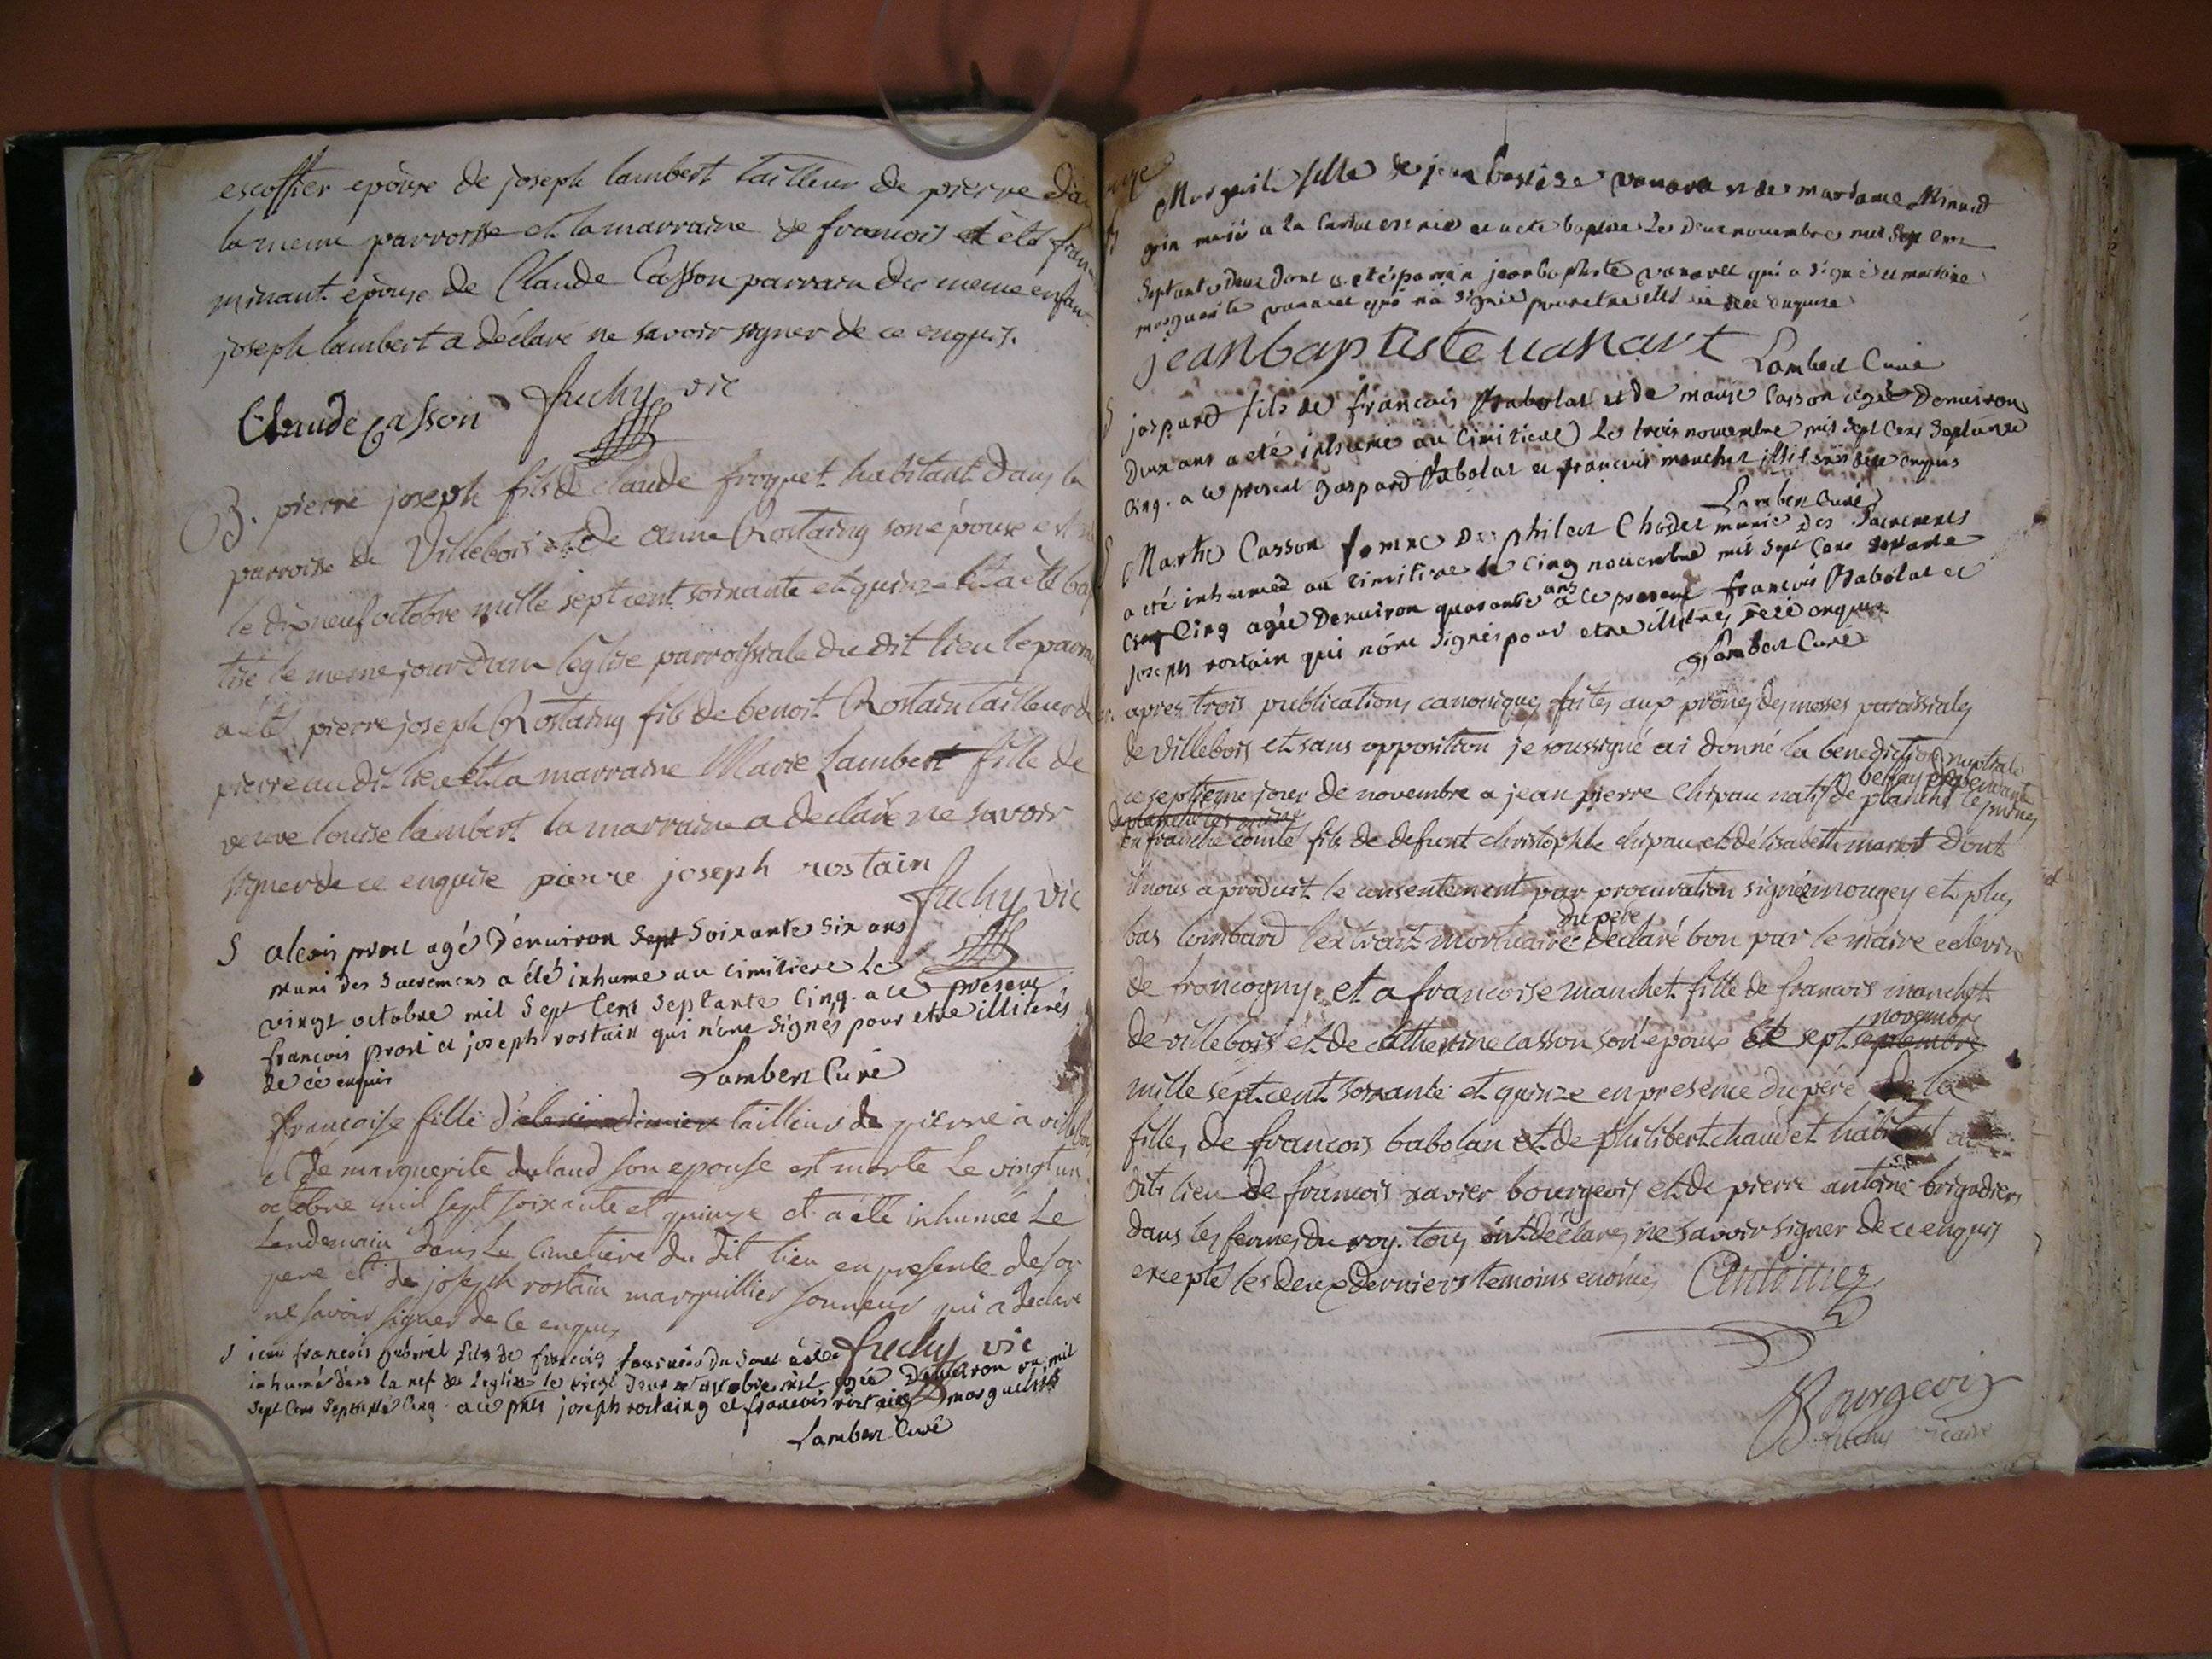 escoffier epouse de joseph lambert tailleur de pierre da
la meme parroisse et la marraine de francois et eté fran
minant épouse de Claude Casson parrain du meme enfan
joseph lambert a déclaré ne savoir signer de ce enquis.
Claude Casson fuchy vic
B. pierre joseph fils de claude froquet habitant dans la
parroisse de Villebois et de anne Rostaing son épouse est
le dixneuf octobre mille sept cent soixante et quinze et a eté bap
tisé le meme jour dans leglise parroissiale du dit lieu le parra
a eté pierre joseph Rostaing fils de benoit Rostain tailleur de
pierre au dit lieu et la marraine Marie Lambert fille de
veuve louise lambert la marraine a declaré ne savoir
signer de ce enquise pierre joseph rostain
fuchy vic
S alexis prost agé d'environ sept soixante six ans
muni des sacremens a été inhume au cimitiere le
vingt octobre mil sept cent septante cinq. a ce present
françois prost et joseph rostain qui n'ont signés pour etre illiterés
de ce enquis Lambert Curé
francoise fille d'alexis tailleur de pierre a villebois
et de marguerite dulaud son epouse est morte le vingt un
octobre mil sept soixante et quinze et a été inhumée le
Lendemain dans le cimetiere du dit lieu en presente de son
pere et de joseph rostain marguillier sonneur qui a declaré
ne savoir signer de ce enquis
fuchy vic
S jean francois gabriel fils de francois du
inhumé dans la nef de leglise le vingt agée d'environ un mil
sept cens septante cinq. a ce pnts joseph rostaing et francois rostaing marguilliers
Lambert Curé
Marguerite fille de jean baptise vanara et de madame Minand
a eté baptise les deux novembre mil sept cens
septante deux dont a eté parrin jean baptiste vanaret qui a signé et marraine
marguerite vanaret qui na signé pour etre de ce enquise
jean baptiste vanart Lambert Curé
S jaspard fils de francois Babolat et de marie Casson agée denviron
deux ans a eté inhumé au cimitiere le trois novembre mil sept cens septante
cinq. a ce present gaspard Babolat et francois manchet illiterés de ce enquis
Lambert Curé
S Marthe Casson femme de philert Chodet munie des sacrements
a eté inhumée au cimitiere le cinq novembre mil sept cens septante
cinq cinq agée denviron quarante ans a ce present francois Babolat et
joseph rostain qui n'ont signés pour etre illiterés de ce enquis
Lambert Curé
apres trois publications canoniques faites aux prônes des messes paroissiales
de Villebois et sans opposition je soussigné ai donné la benediction nuptiale
ce septieme jour de novembre a jean pierre chipau natif de
en franche comté fils de defunt christophle chipau et délisabeth marot dont
il nous a produit le consentement par procuration signée mougey et plus
bas lombard l'extrait mortuaire du pere declaré bon par le maire echevin
de francogny. et a francoise manchet fille de francois manchet
de villebois et de catherine casson son epouse le sept septembre novembre
mille sept cent soixante et quinze en presence du pere de la
fille, de francois babolan et de philibert chaudet habitant au
dits lieu de francois xavier bourgeois et de pierre antoine brigadiers
dans les fermes du roy. tous ont declarés ne savoir signer de ce enquis
excepté les deux derniers temoins enoncés Antoine
Bourgeois
fuchy vicaire